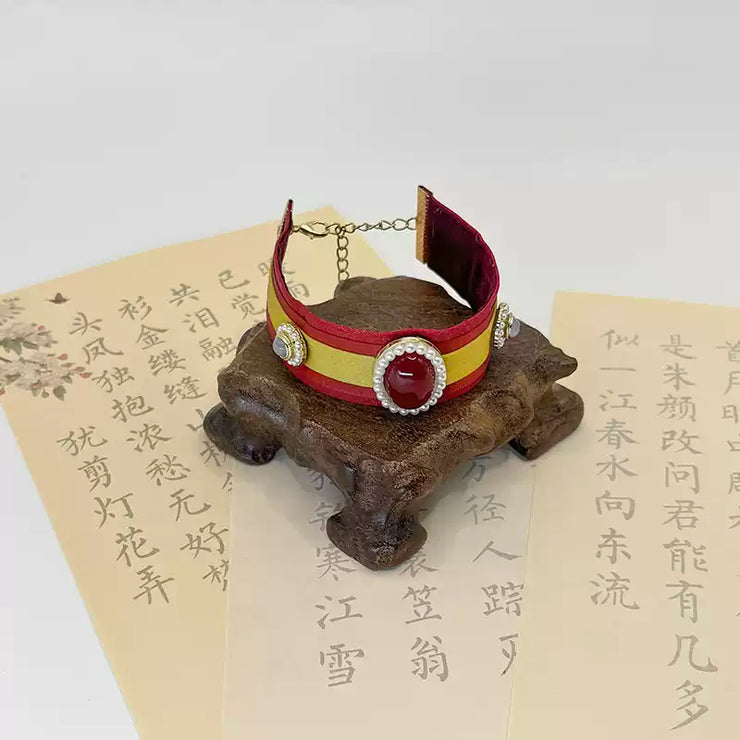 首月明中
是朱颜改问君能有几多
似一江春水向东流
万径人踪
笠翁
寒江雪
已觉
共泪融
衫金缕缝山
头凤独抱浓愁无好
犹剪灯花弄